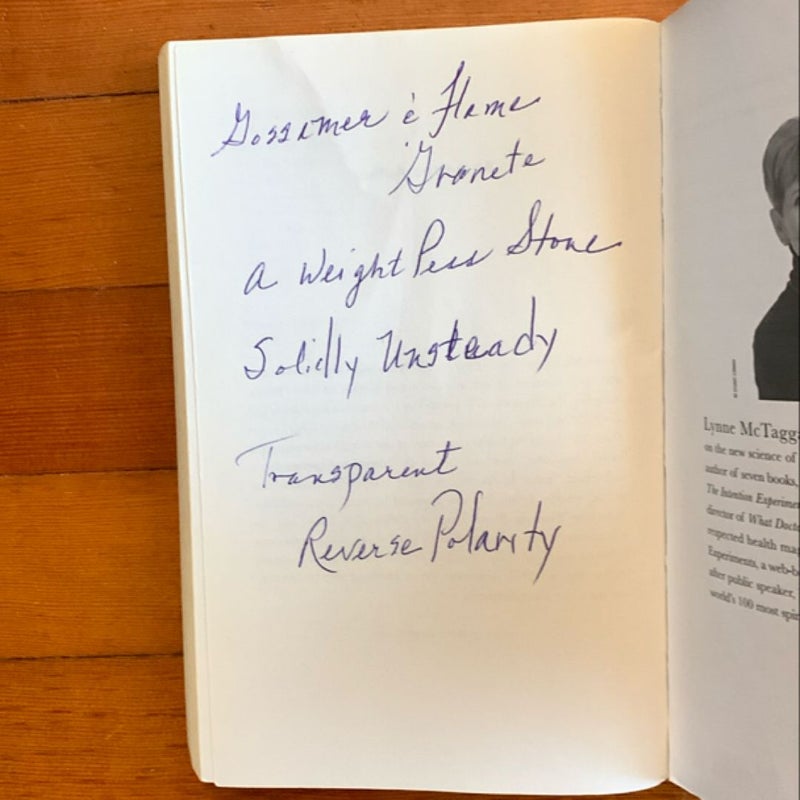 Gossamer & Flame
Granete
A Weight Less Stone
Solidly Unsteady
Transparent
Reverse Polarity
Lynne McTagg
on the new science of
author of seven books,
The Intention Experime
director of What Docto
respected health mag
Experiments, a web-b
after public speaker,
world's 100 most spir